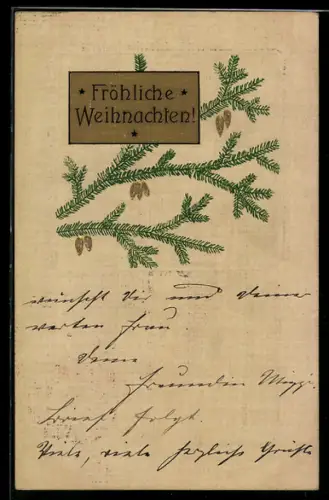 Fröhliche
Weihnachten!
wünscht dir und deiner
werten Frau.
deine
Freundin Mizzi.
Brief folgt.
Viele, viele herzliche Grüße